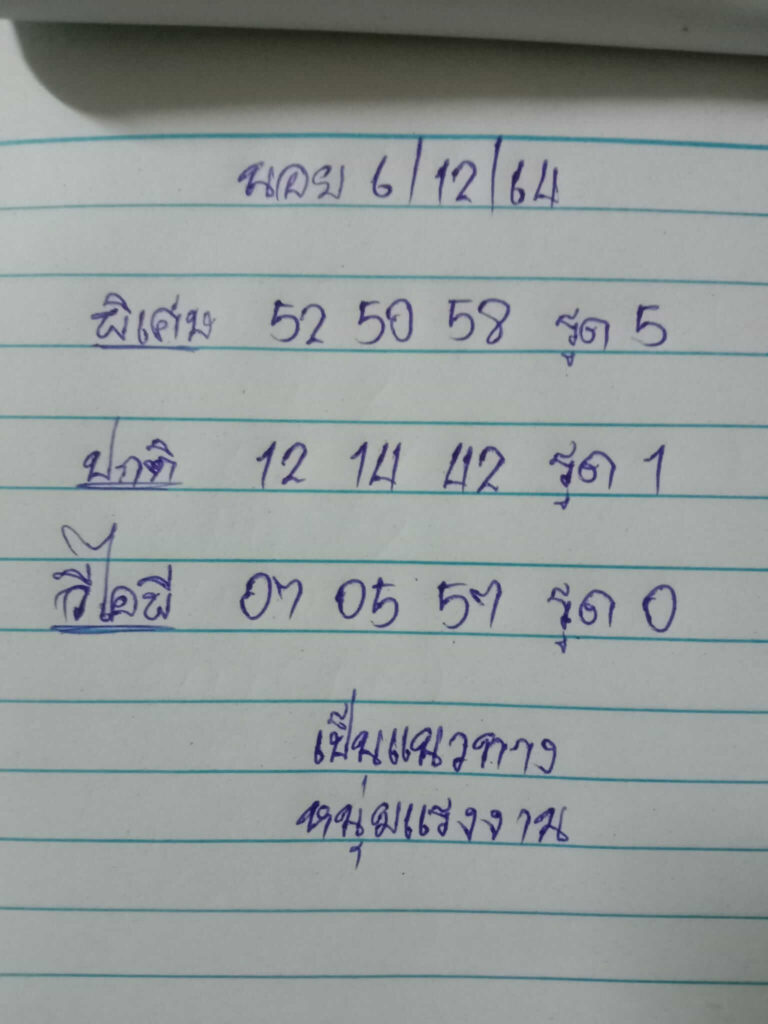 นอย 6/12/64
พิเศษ 52 50 58 รูด 5
ปกติ 12 14 42 รูด 1
วีไอพี 07 05 57 รูด 0
เป็นแนวทาง
หนุ่มแรงงาน